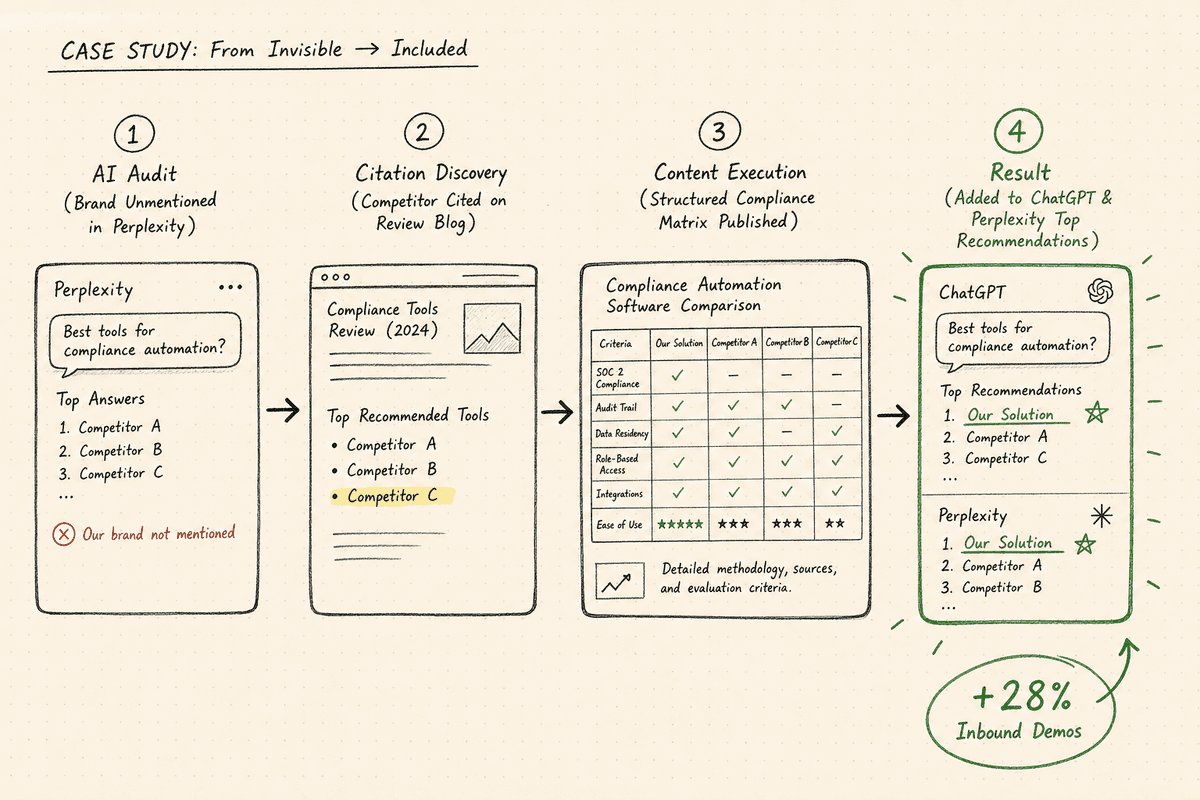 CASE STUDY: From Invisible → Included
1
AI Audit
(Brand Unmentioned
in Perplexity)
Perplexity
Best tools for
compliance automation?
Top Answers
1. Competitor A
2. Competitor B
3. Competitor C
...
Our brand not mentioned
2
Citation Discovery
(Competitor Cited on
Review Blog)
Compliance Tools
Review (2024)
Top Recommended Tools
• Competitor A
• Competitor B
• Competitor C
3
Content Execution
(Structured Compliance
Matrix Published)
Compliance Automation
Software Comparison
Criteria Our Solution Competitor A Competitor B Competitor C
SOC 2
Compliance ✓ – – –
Audit Trail ✓ ✓ ✓ –
Data Residency ✓ ✓ – ✓
Role-Based
Access ✓ ✓ ✓ ✓
Integrations ✓ ✓ ✓ ✓
Ease of Use ★★★★★ ★★★ ★★★ ★★
Detailed methodology, sources,
and evaluation criteria.
4
Result
(Added to ChatGPT &
Perplexity Top
Recommendations)
ChatGPT
Best tools for
compliance automation?
Top Recommendations
1. Our Solution
2. Competitor A
3. Competitor C
...
Perplexity
1. Our Solution
2. Competitor A
3. Competitor B
...
+28%
Inbound Demos